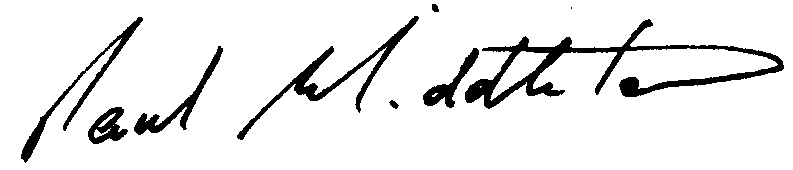 Paul Middleton